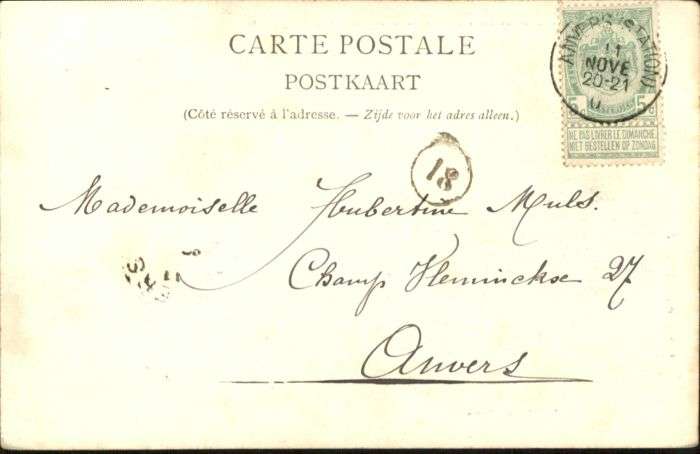 CARTE POSTALE
POSTKAART
(Côté réservé à l'adresse. — Zijde voor het adres alleen.)
ANVERS (STATION)
11
NOVE
20-21
5c 5c
NE PAS LIVRER LE DIMANCHE
NIET BESTELLEN OP ZONDAG
18
Mademoiselle Hubertine Muls.
Champ Vleminckse 27
Anvers